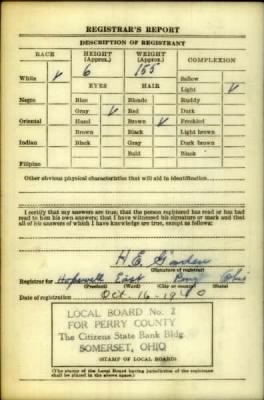 REGISTRAR'S REPORT
DESCRIPTION OF REGISTRANT
RACE HEIGHT (Approx.) WEIGHT (Approx.) COMPLEXION
6 155
White ✓ Sallow
EYES HAIR Light ✓
Negro Blue Blonde Ruddy
Gray ✓ Red Dark
Oriental Hazel Brown ✓ Freckled
Brown Black Light brown
Indian Black Gray Dark brown
Bald Black
Filipino
Other obvious physical characteristics that will aid in identification
I certify that my answers are true; that the person registered has read or has had
to him his own answers; that I have witnessed his signature or mark and that
all of his answers of which I have knowledge are true, except as follows:
H. E.
(Signature of registrar)
Registrar for Hopewell East Perry Ohio
(Precinct) (Ward) (City or county) (State)
Date of registration Oct. 16-1940
LOCAL BOARD No. 2
FOR PERRY COUNTY
The Citizens State Bank Bldg.
SOMERSET, OHIO
(STAMP OF LOCAL BOARD)
(The stamp of the Local Board having jurisdiction of the registrant
shall be placed in the above space.)